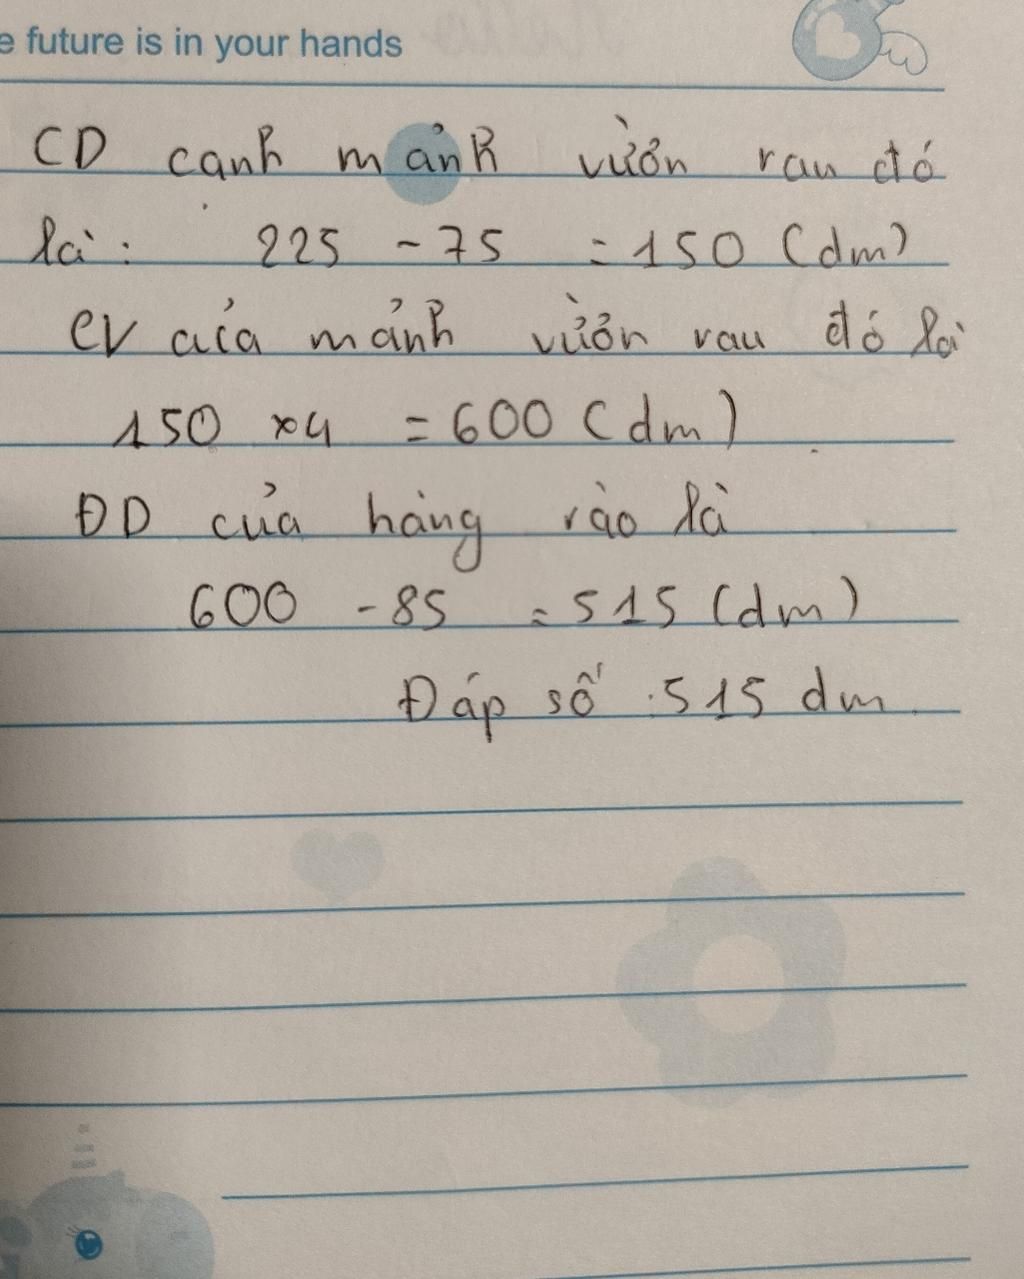 e future is in your hands
CD cạnh mảnh vườn rau đó
là: 225 - 75 = 150 (dm)
CV của mảnh vườn rau đó là
150 x 4 = 600 (dm)
ĐD của hàng rào là
600 - 85 = 515 (dm)
Đáp số : 515 dm